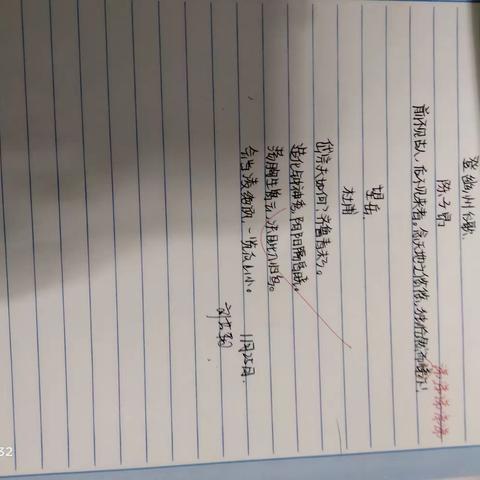 登幽州台歌
陈子昂
前不见古人,后不见来者。念天地之悠悠,独怆然而涕下!
望岳
杜甫
岱宗夫如何?齐鲁青未了。
造化钟神秀,阴阳割昏晓。
荡胸生曾云,决眦入归鸟。
会当凌绝顶,一览众山小。
11月25日.
32